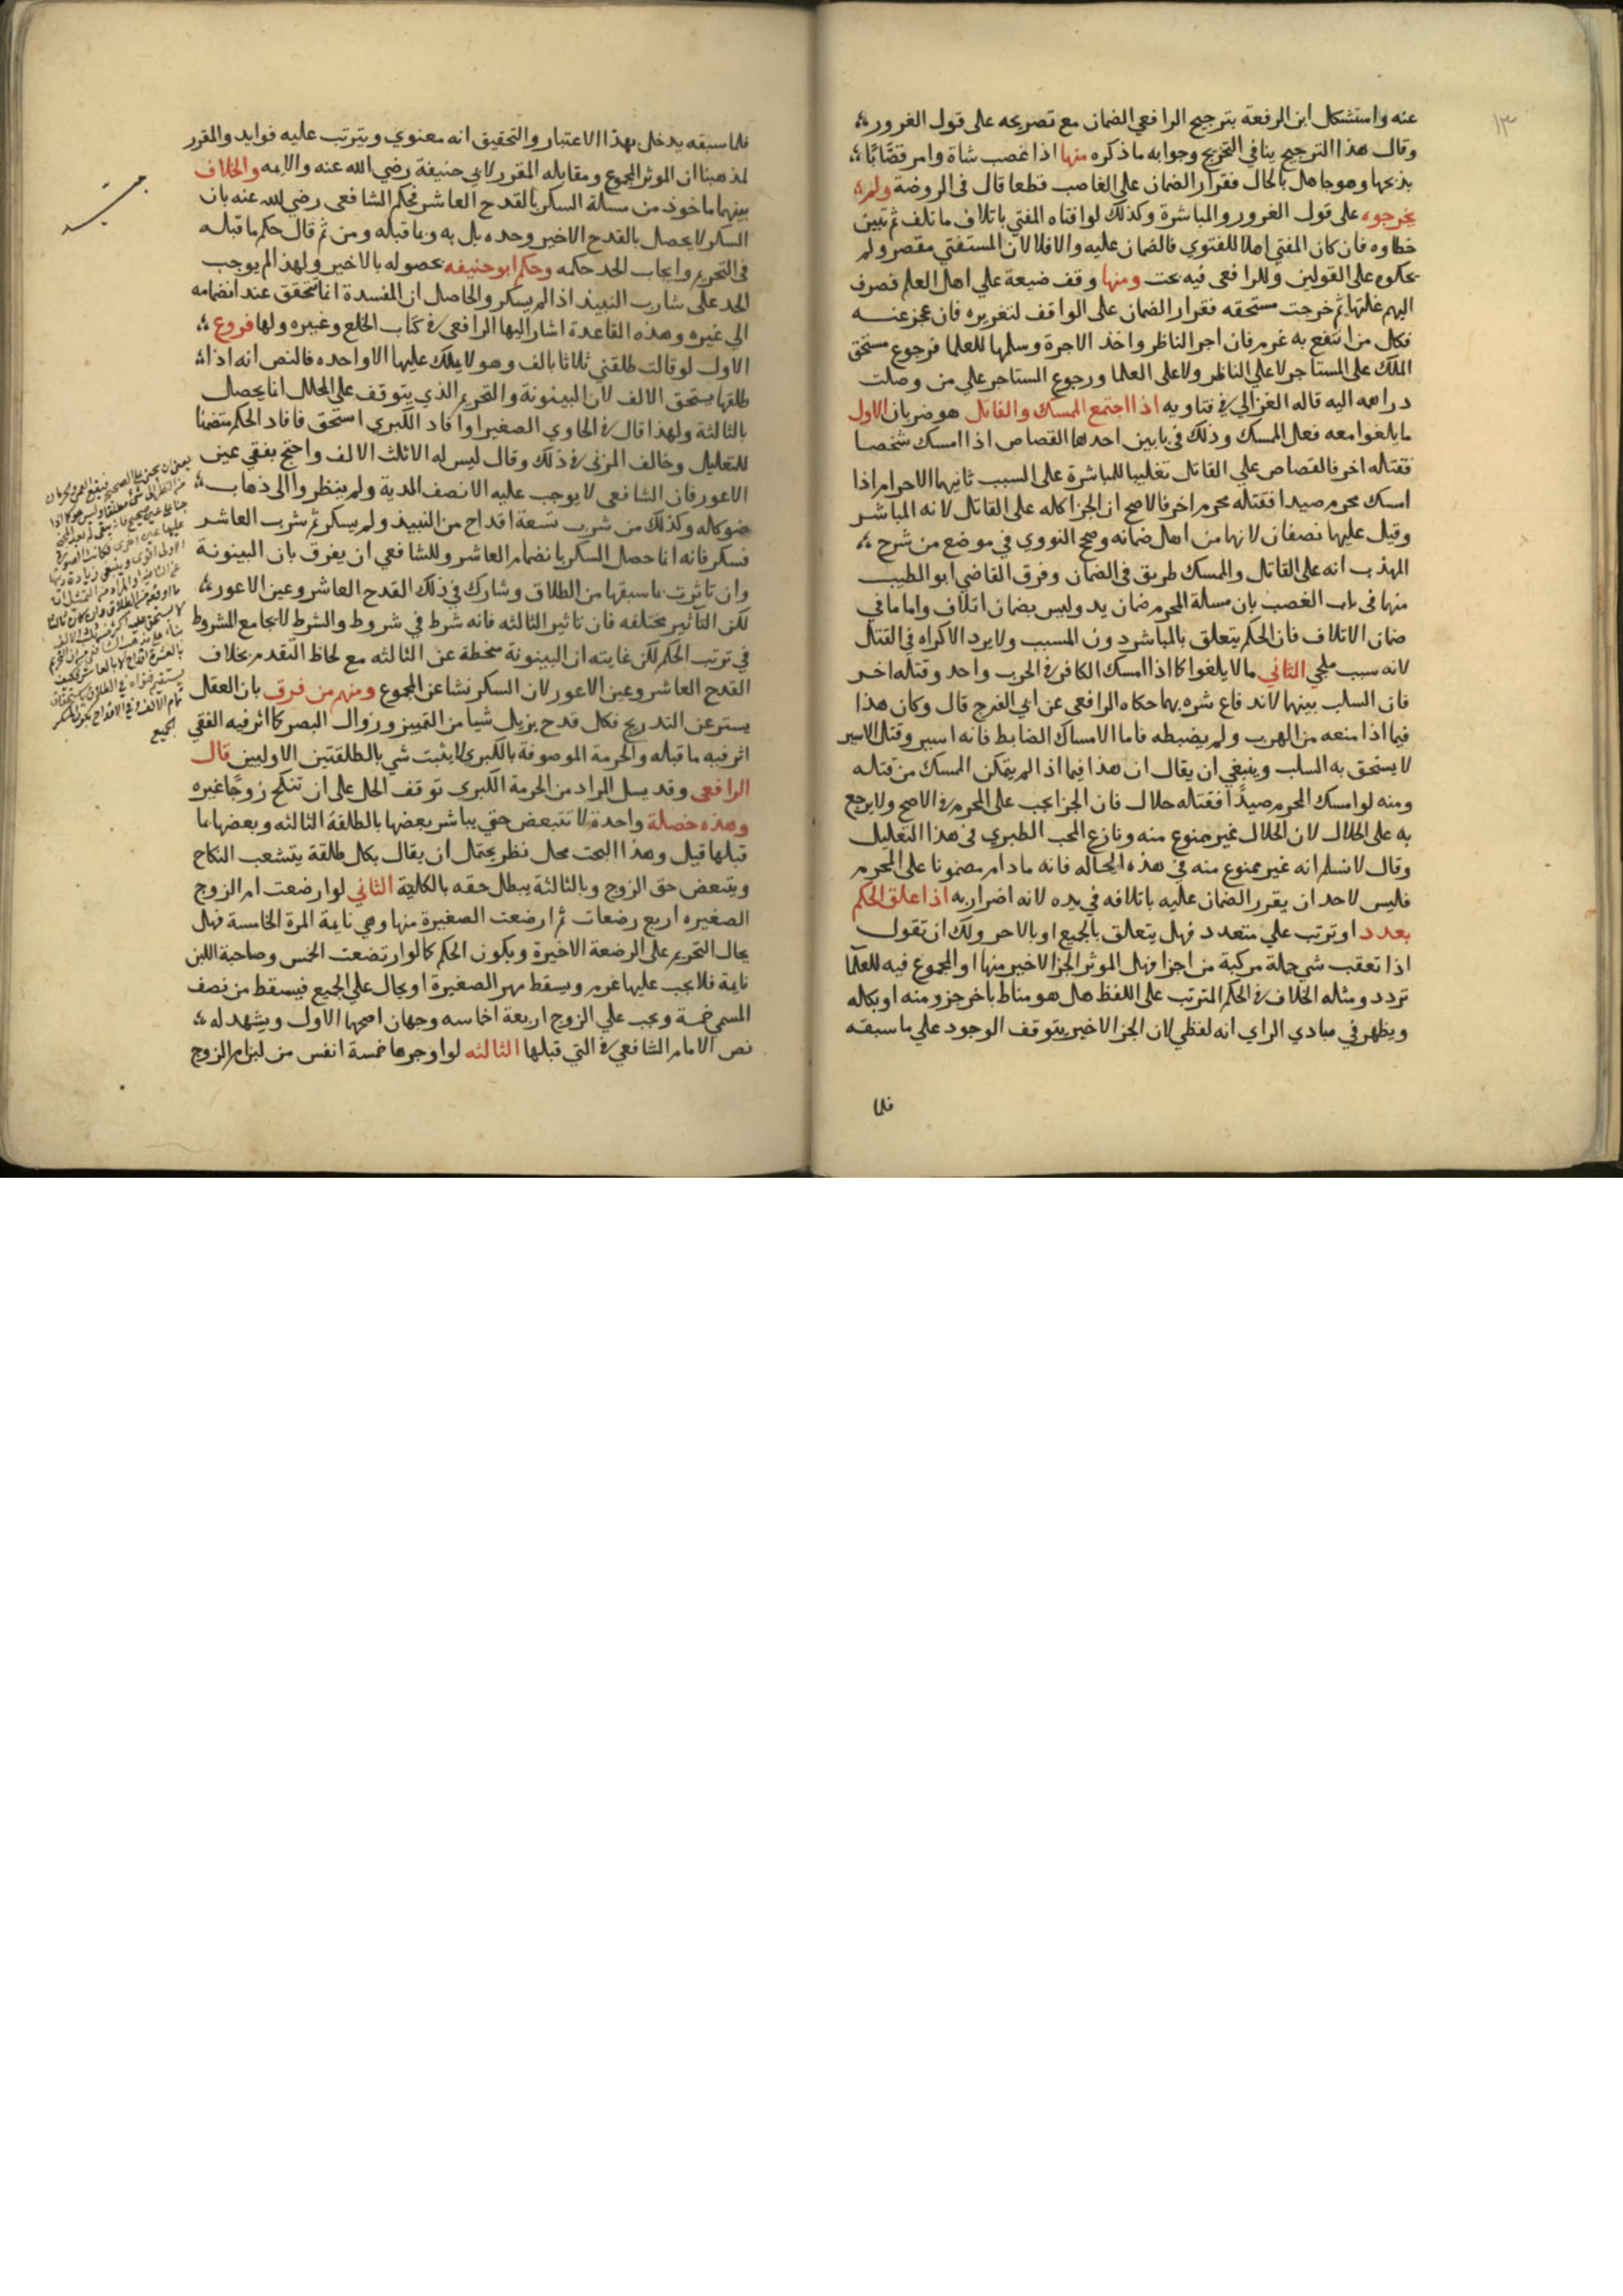 ١٣
عنه واستشكل ابن الرفعة بترجيح الرافعي الضمان مع تصريحه على قول الغرور
وقال هذا الترجيح ينافي التخريج وجوابه ما ذكره منها اذا غصب شاة وامر قصابًا
بذبحها وهو جاهل بالحال فقرار الضمان على الغاصب قطعا قال في الروضة ولم
يخرجوه على قول الغرور والمباشرة وكذلك لو افتاه المفتي باتلاف ما تلف ثم تبين
خطاوه فان كان المفتي اهلا للفتوي فالضمان عليه والا فلا لان المستفتي مقصر ولم
يحكوه على القولين وللرافعي فيه بحث ومنها وقف ضيعة علي اهل العلم فصرف
اليهم غلتها ثم خرجت مستحقه فقرار الضمان على الواقف لتغريره فان عجز عنه
فكل من انتفع به غرم فان اجر الناظر واخذ الاجرة وسلمها للعلما فرجوع مستحق
الملك على المستاجر لا علي الناظر ولا على العلما ورجوع المستاجر علي من وصلت
دراهمه اليه قاله الغزالي في فتاويه اذا اجتمع الممسك والقاتل هو ضربان الاول
ما يلغوا معه فعل الممسك وذلك في بابين احدهما القصاص اذا امسك شخصا
فقتله اخر فالقصاص علي القاتل تغليبا للمباشرة على السبب ثانيهما الاحرام اذا
امسك محرم صيدا فقتله محرم اخر فالاصح ان الجزا كله على القاتل لانه المباشر
وقيل عليهما نصفان لانهما من اهل ضمانه وصحح النووي في موضع من شرح
المهذب انه على القاتل والممسك طريق في الضمان وفرق القاضي ابو الطيب
منها في باب الغصب بان مسالة المحرم ضمان يد وليس بضمان اتلاف واما ما في
ضمان الاتلاف فان الحكم يتعلق بالمباشر دون المسبب ولا يرد الاكراه في القتل
لانه سبب ملجي الثاني ما لا يلغوا كما اذا امسك الكافر في الحرب واحد وقتله اخر
فان السلب بينهما لاندفاع شره بهما حكاه الرافعي عن ابي الفرج قال وكان هذا
فيما اذا منعه من الهرب ولم يضبطه فاما الامساك الضابط فانه اسير وقتل الاسير
لا يستحق به السلب وينبغي ان يقال ان هذا فيما اذا لم يتمكن الممسك من قتله
ومنه لو امسك المحرم صيدًا فقتله حلال فان الجزا يجب على المحرم في الاصح ولا يرجع
به على الحلال لان الحلال غير ممنوع منه ونازع المحب الطبري في هذا التعليل
وقال لا نسلم انه غير ممنوع منه في هذه الحاله فانه ما دام مضمونا على المحرم
فليس لاحد ان يقرر الضمان عليه باتلافه في يده لانه اضرار به اذا علق الحكم
بعدد او ترتب علي متعدد فهل يتعلق بالجميع او بالاخر ولك ان تقول
اذا تعقب شي جملة مركبة من اجزا فهل الموثر الجزا الاخير منها او المجموع فيه للعلما
تردد ومثله الخلاف في الحكم المترتب على اللفظ هل هو مناط باخر جزو منه او بكله
ويظهر في مبادي الراي انه لفظي لان الجزا الاخير يتوقف الوجود علي ما سبقه
فلما
فلما سبقه يدخل بهذا الاعتبار والتحقيق انه معنوي ويترتب عليه فوايد والمقرر
لمذهبنا ان الموثر المجموع ومقابله المقرر لابي حنيفة رضي الله عنه والايمه والخلاف
بينهما ماخوذ من مسالة السكر بالقدح العاشر فحكم الشافعي رضي الله عنه بان
السكر لا يحصل بالقدح الاخير وحده بل به وبما قبله ومن ثم قال حكم ما قبله
في التحريم وايجاب الحد حكمه وحكم ابو حنيفه بحصوله بالاخير ولهذا لم يوجب
الحد على شارب النبيذ اذا لم يسكر والحاصل ان المفسدة انما تتحقق عند انضمامه
الي غيره وهذه القاعدة اشار اليها الرافعي في كتاب الخلع وغيره ولها فروع
الاول لو قالت طلقني ثلاثا بالف وهو لا يملك عليها الا واحده فالنص انه اذا
طلقها يستحق الالف لان البينونة والتحريم الذي يتوقف على المحلل انما يحصل
بالثالثة ولهذا قال في الحاوي الصغير او افاد الكبري استحق فافاد الحكم متضمنا
للتعليل وخالف المزني في ذلك وقال ليس له الا ثلث الالف واحتج بفقي عين
الاعور فان الشافعي لا يوجب عليه الا نصف الدية ولم ينظروا الى ذهاب
ضوكاله وكذلك من شرب تسعة اقداح من النبيذ ولم يسكر ثم شرب العاشر
فسكر فانه انما حصل السكر بانضمام العاشر وللشافعي ان يفرق بان البينونة
وان تاثرت بما سبقها من الطلاق وشارك في ذلك القدح العاشر وعين الاعور
لكن التاثير مختلفه فان تاثير الثالثه فانه شرط في شروط والشرط لا يجامع المشروط
في ترتب الحكم لكن غايته ان البينونة منحطة عن الثالثه مع لحاظ التقدم بخلاف
القدح العاشر وعين الاعور لان السكر نشا عن المجموع ومنهم من فرق بان العقل
يستر عن التدريج فكل قدح يزيل شيا من التمييز وزوال البصر كما اثر فيه الفقي
اثر فيه ما قبله والحرمة الموصوفة بالكبري لا يثبت شي بالطلقتين الاوليين قال
الرافعي وقد يسل المراد من الحرمة الكبري توقف الحل على ان تنكح زوجًا غيره
وهذه خصلة واحدة لا تتبعض حتي يباشر بعضها بالطلقة الثالثه وبعضها بما
قبلها قيل وهذا البحث محل نظر يحتمل ان يقال بكل طلقة يتشعب النكاح
ويتبعض حق الزوج وبالثالثة يبطل حقه بالكلية الثاني لو ارضعت ام الزوج
الصغيره اربع رضعات ثم ارضعت الصغيرة منها وهي نايمة المرة الخامسة فهل
يحال التحريم على الرضعة الاخيرة ويكون الحكم كما لو ارتضعت الخمس وصاحبة اللبن
نايمة فلا يجب عليها غرم ويسقط مهر الصغيرة او يحال علي الجميع فيسقط من نصف
المسمي خمسة ويجب علي الزوج اربعة اخماسه وجهان اصحهما الاول ويشهد له
نص الامام الشافعي في التي قبلها الثالثه لو اوجرها خمسة انفس من لبن ام الزوج